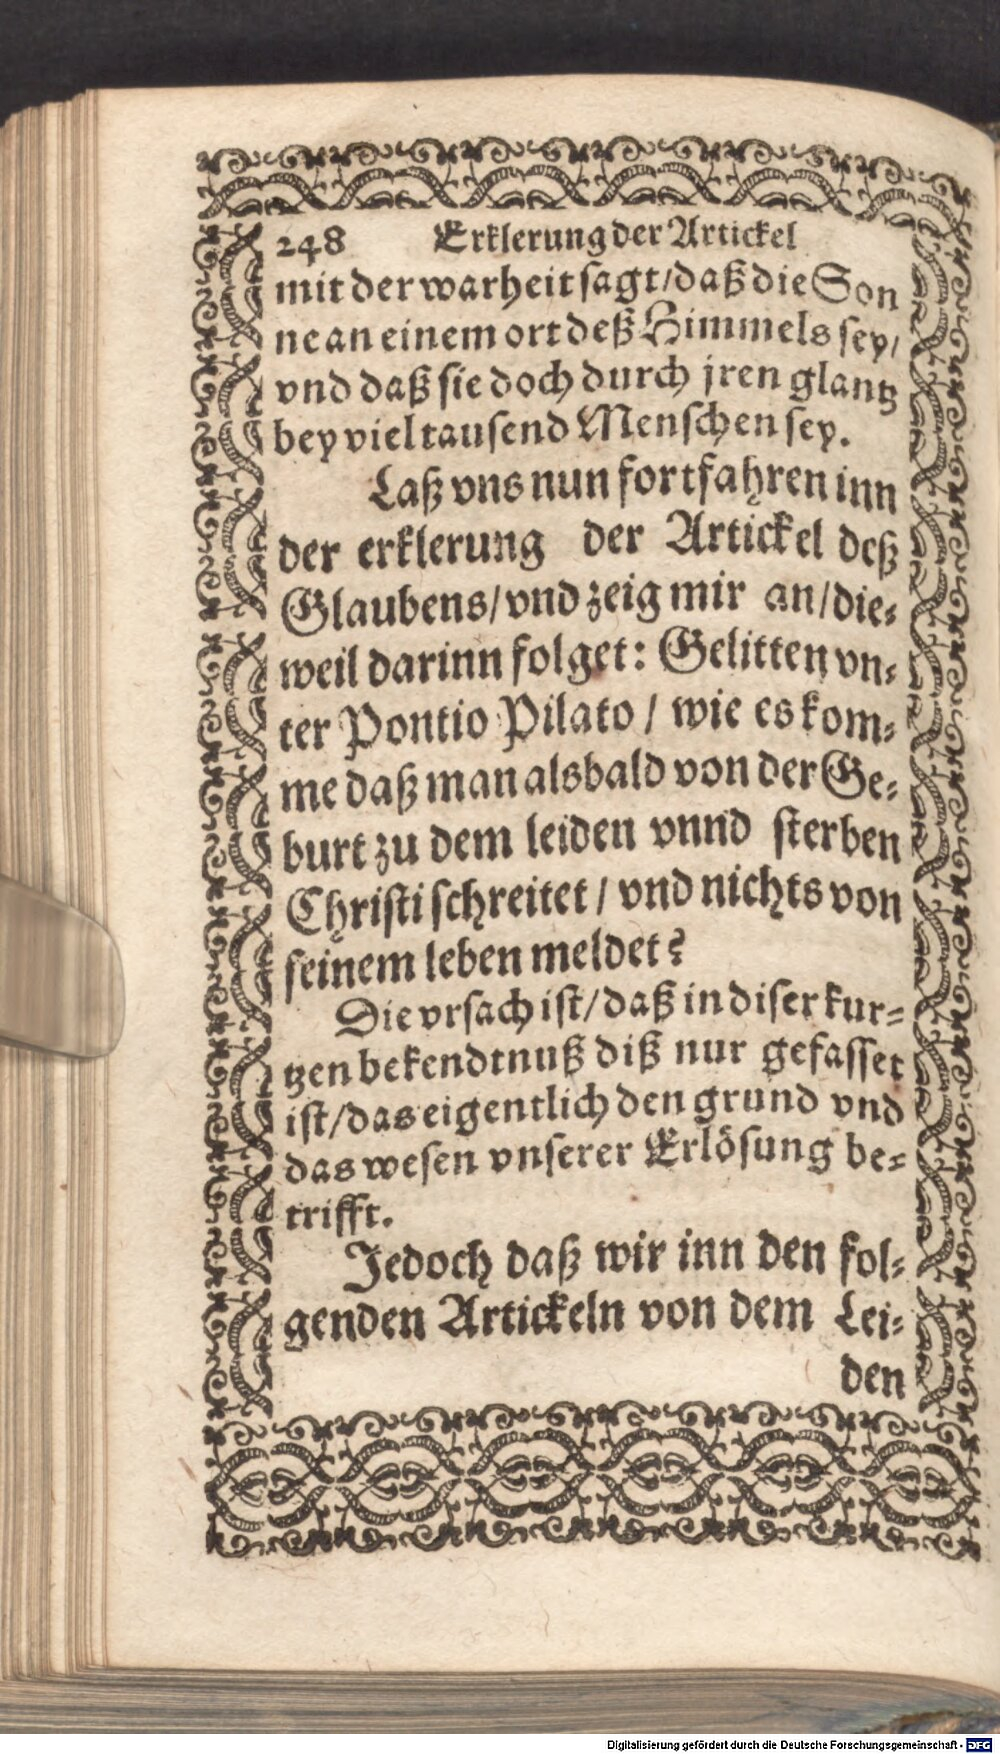 248 Erklerung der Artickel
mit der warheit sagt/daß die Son
ne an einem ort deß Himmels sey/
vnd daß sie doch durch jren glantz
bey viel tausend Menschen sey.
Laß vns nun fortfahren inn
der erklerung der Artickel deß
Glaubens/vnd zeig mir an/die-
weil darinn folget: Gelitten vn-
ter Pontio Pilato / wie es kom-
me daß man alsbald von der Ge-
burt zu dem leiden vnnd sterben
Christi schreitet / vnd nichts von
seinem leben meldet?
Die vrsach ist/daß in diser kur-
tzen bekendtnuß diß nur gefasset
ist/das eigentlich den grund vnd
das wesen vnserer Erlösung be-
trifft.
Jedoch daß wir inn den fol-
genden Artickeln von dem Lei-
den
Digitalisierung gefördert durch die Deutsche Forschungsgemeinschaft - DFG